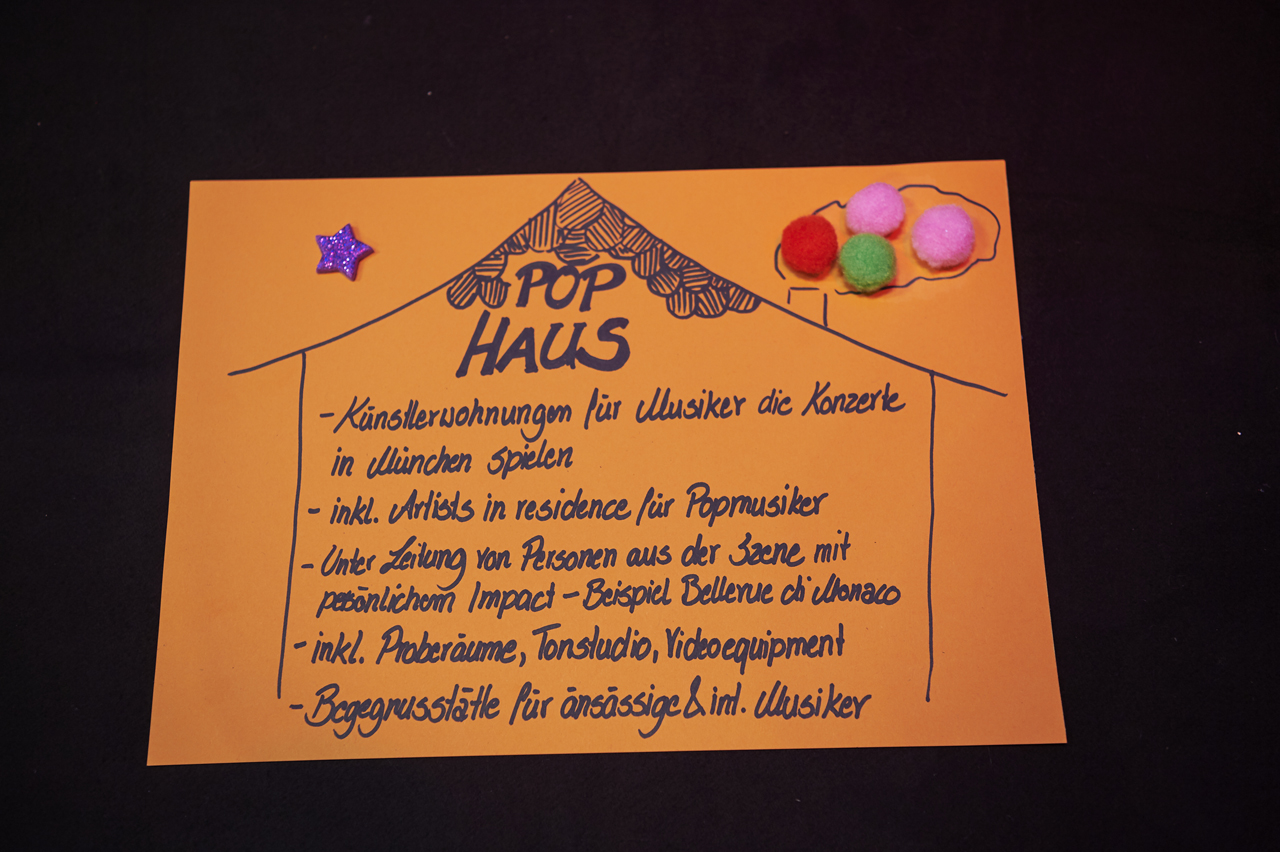 POP
HAUS
- Künstlerwohnungen für Musiker die Konzerte
in München spielen
- inkl. Artists in residence für Popmusiker
- Unter Leitung von Personen aus der Szene mit
persönlichem Impact - Beispiel Bellevue di Monaco
- inkl. Proberäume, Tonstudio, Videoequipment
- Begegnusstätte für ansässige & int. Musiker